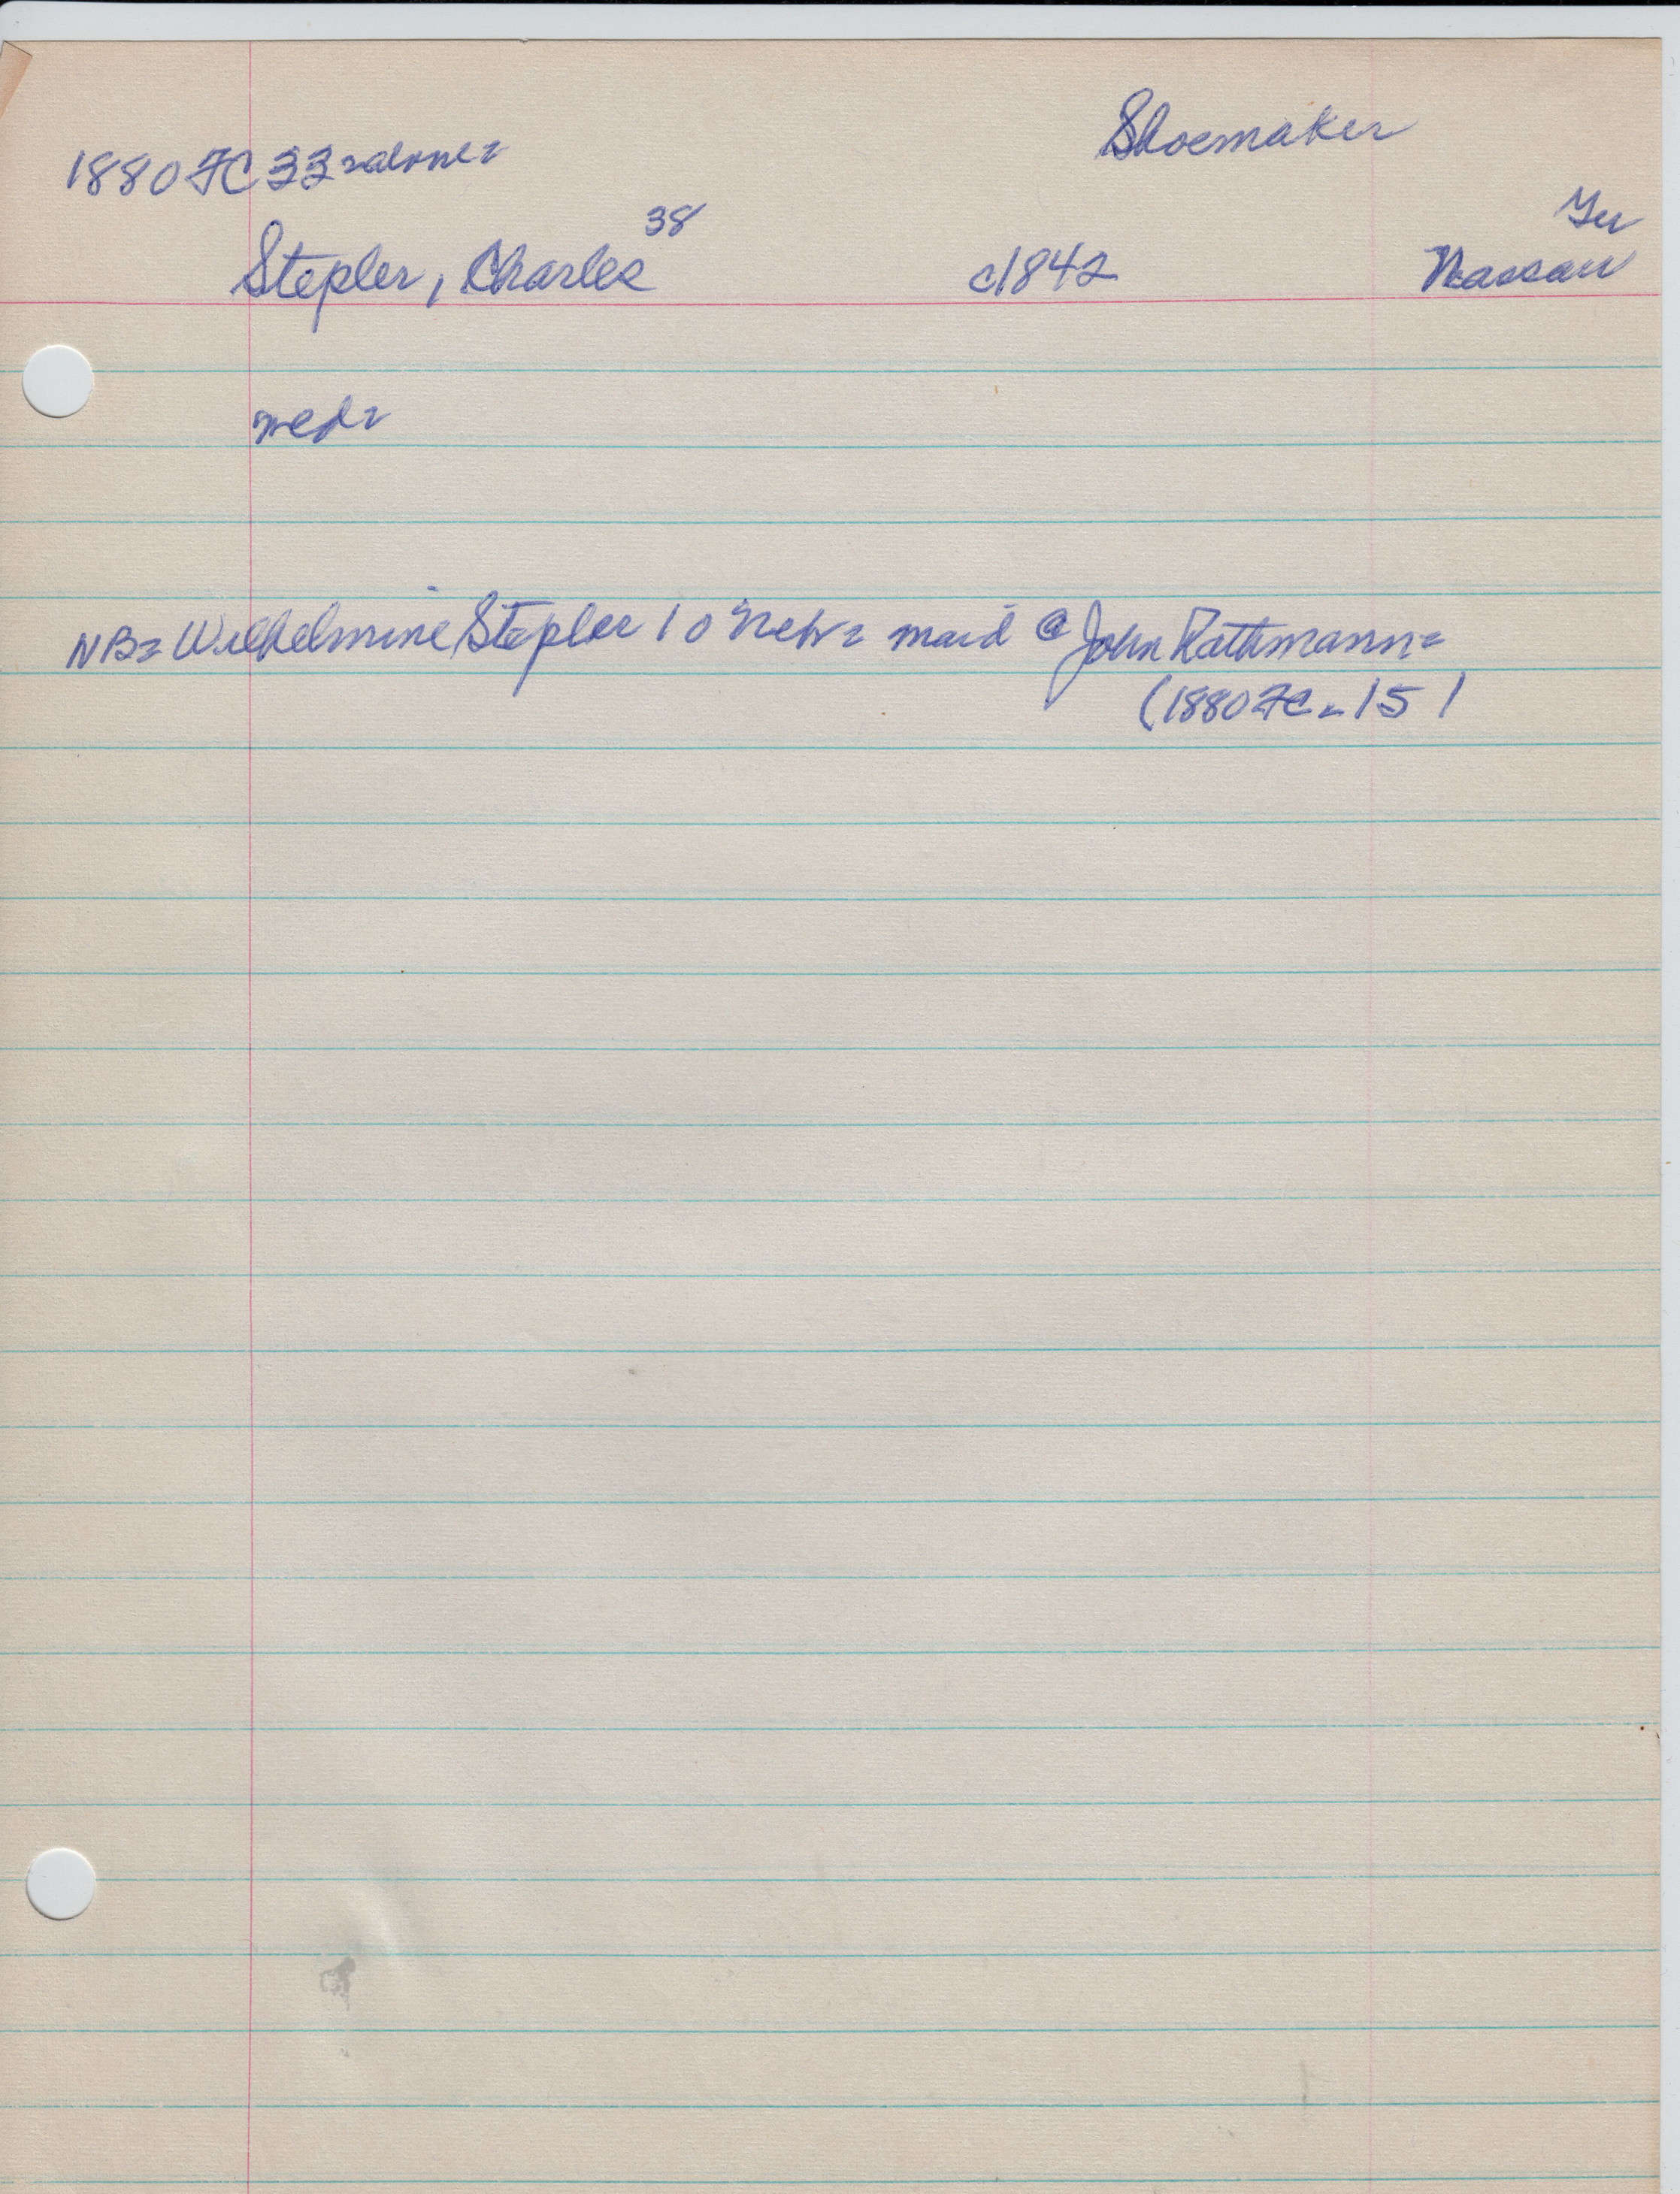 Shoemaker
1880 FC 33 = alone =
38
Ger
Stepler, Charles c1842 Nassau
NB = Wilhelmine Stepler 10 Nebr = maid @ John Rathmann =
(1880 FC - 15)